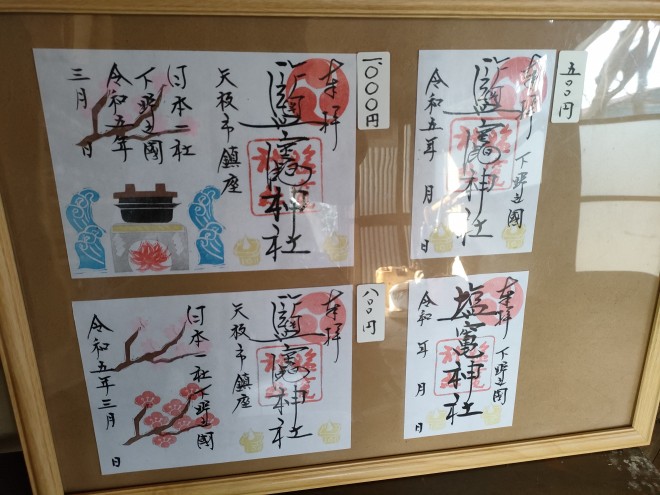 一〇〇〇円
奉拝
鹽竈神社
矢板市鎮座
日本一社
下野之國
令和五年
三月 日
五〇〇円
奉拝 下野之國
鹽竈神社
令和五年 月 日
八〇〇円
奉拝
鹽竈神社
矢板市鎮座
日本一社下野之國
令和五年三月 日
奉拝 下野之國
塩竈神社
令和 年 月 日